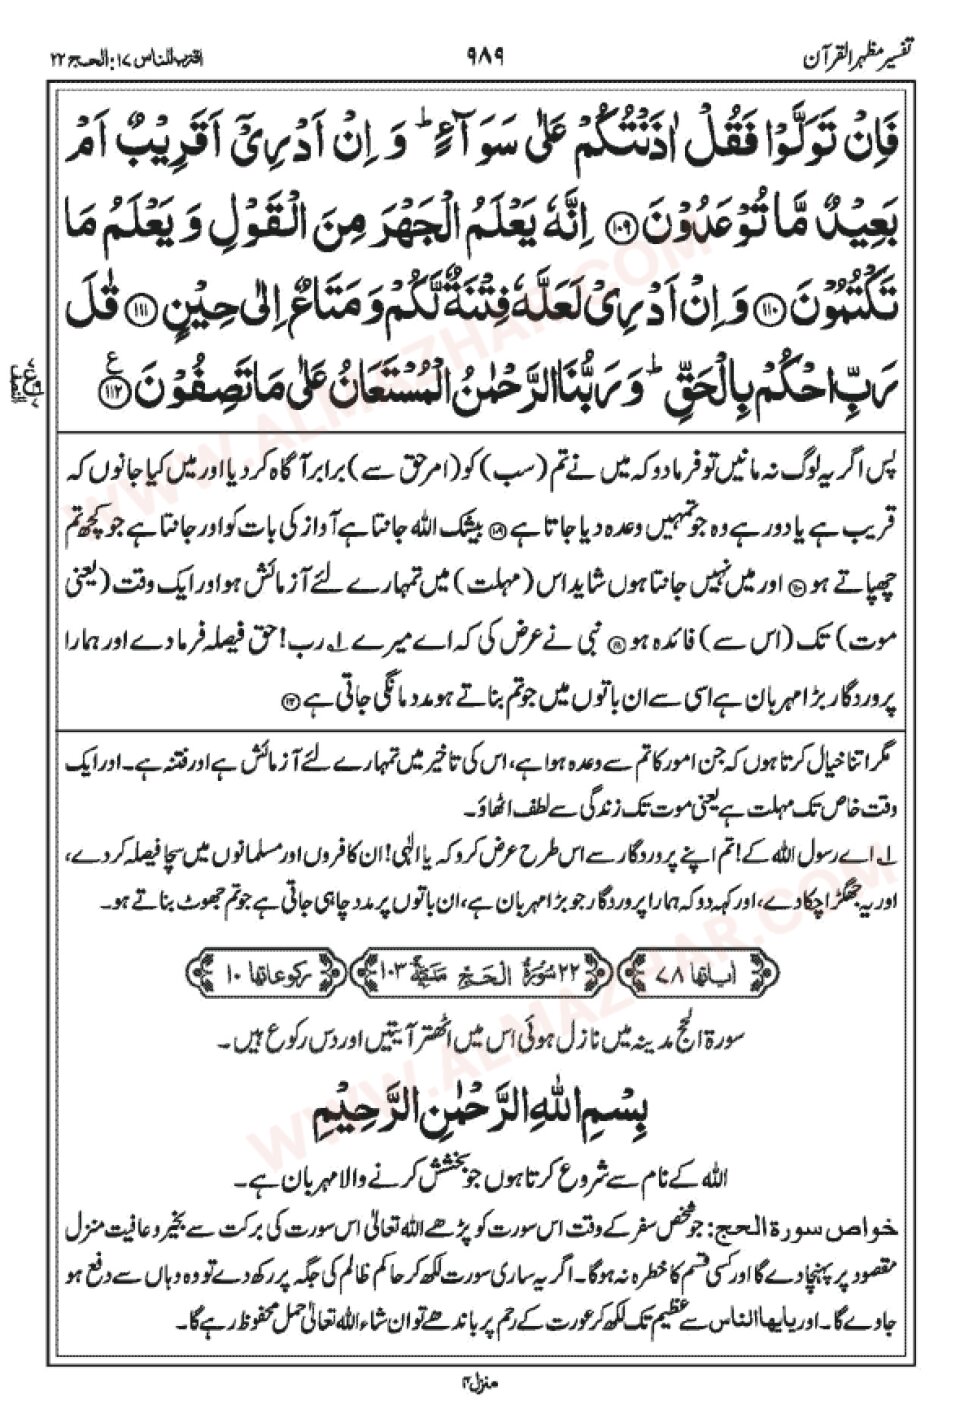 تفسیر مظہر القرآن ۹۸۹ اقترب للناس ۱۷: الحج ۲۲
فَاِنْ تَوَلَّوْا فَقُلْ اٰذَنْتُكُمْ عَلٰی سَوَآءٍ ؕ وَ اِنْ اَدْرِیْۤ اَقَرِیْبٌ اَمْ
بَعِیْدٌ مَّا تُوْعَدُوْنَ ﴿۱۰۹﴾ اِنَّهٗ یَعْلَمُ الْجَهْرَ مِنَ الْقَوْلِ وَ یَعْلَمُ مَا
تَكْتُمُوْنَ ﴿۱۱۰﴾ وَ اِنْ اَدْرِیْ لَعَلَّهٗ فِتْنَةٌ لَّكُمْ وَ مَتَاعٌ اِلٰی حِیْنٍ ﴿۱۱۱﴾ قٰلَ
رَبِّ احْكُمْ بِالْحَقِّ ؕ وَ رَبُّنَا الرَّحْمٰنُ الْمُسْتَعَانُ عَلٰی مَا تَصِفُوْنَ ﴿۱۱۲﴾ ع
پس اگر یہ لوگ نہ مانیں تو فرمادو کہ میں نے تم (سب) کو (امر حق سے) برابر آگاہ کردیا اور میں کیا جانوں کہ
قریب ہے یا دور ہے وہ جو تمہیں وعدہ دیا جاتا ہے ﴿۱۰۹﴾ بیشک اللہ جانتا ہے آواز کی بات کو اور جانتا ہے جو کچھ تم
چھپاتے ہو ﴿۱۱۰﴾ اور میں نہیں جانتا ہوں شاید اس (مہلت) میں تمہارے لئے آزمائش ہو اور ایک وقت (یعنی
موت) تک (اس سے) فائدہ ہو ﴿۱۱۱﴾ نبی نے عرض کی کہ اے میرے ۱؎ رب! حق فیصلہ فرمادے اور ہمارا
پروردگار بڑا مہربان ہے اسی سے ان باتوں میں جو تم بناتے ہو مدد مانگی جاتی ہے ﴿۱۱۲﴾
مگر اتنا خیال کرتا ہوں کہ جن امور کا تم سے وعدہ ہوا ہے، اس کی تاخیر میں تمہارے لئے آزمائش ہے اور فتنہ ہے۔ اور ایک
وقت خاص تک مہلت ہے یعنی موت تک زندگی سے لطف اٹھاؤ۔
۱؎ اے رسول اللہ کے! تم اپنے پروردگار سے اس طرح عرض کرو کہ یا الٰہی! ان کافروں اور مسلمانوں میں سچا فیصلہ کردے،
اور یہ جھگڑا چکا دے، اور کہہ دو کہ ہمارا پروردگار جو بڑا مہربان ہے، ان باتوں پر مدد چاہی جاتی ہے جو تم جھوٹ بناتے ہو۔
اٰیاتها ۷۸ ۲۲ سُوْرَةُ الْحَجِّ مَدَنِیَّةٌ ۱۰۳ رکوعاتها ۱۰
سورۃ الحج مدینہ میں نازل ہوئی اس میں اٹھتر آیتیں اور دس رکوع ہیں۔
بِسْمِ اللّٰهِ الرَّحْمٰنِ الرَّحِیْمِ
اللہ کے نام سے شروع کرتا ہوں جو بخشش کرنے والا مہربان ہے۔
خواص سورۃ الحج: جو شخص سفر کے وقت اس سورت کو پڑھے اللہ تعالیٰ اس سورت کی برکت سے بخیر و عافیت منزل
مقصود پر پہنچا دے گا اور کسی قسم کا خطرہ نہ ہوگا۔ اگر یہ ساری سورت لکھ کر حاکم ظالم کی جگہ پر رکھ دے تو وہ وہاں سے دفع ہو
جاوے گا۔ اور یایها الناس سے عظیم تک لکھ کر عورت کے رحم پر باندھے تو ان شاء اللہ تعالیٰ حمل محفوظ رہے گا۔
منزل ۴
WWW.ALMAZHAR.COM
WWW.ALMAZHAR.COM